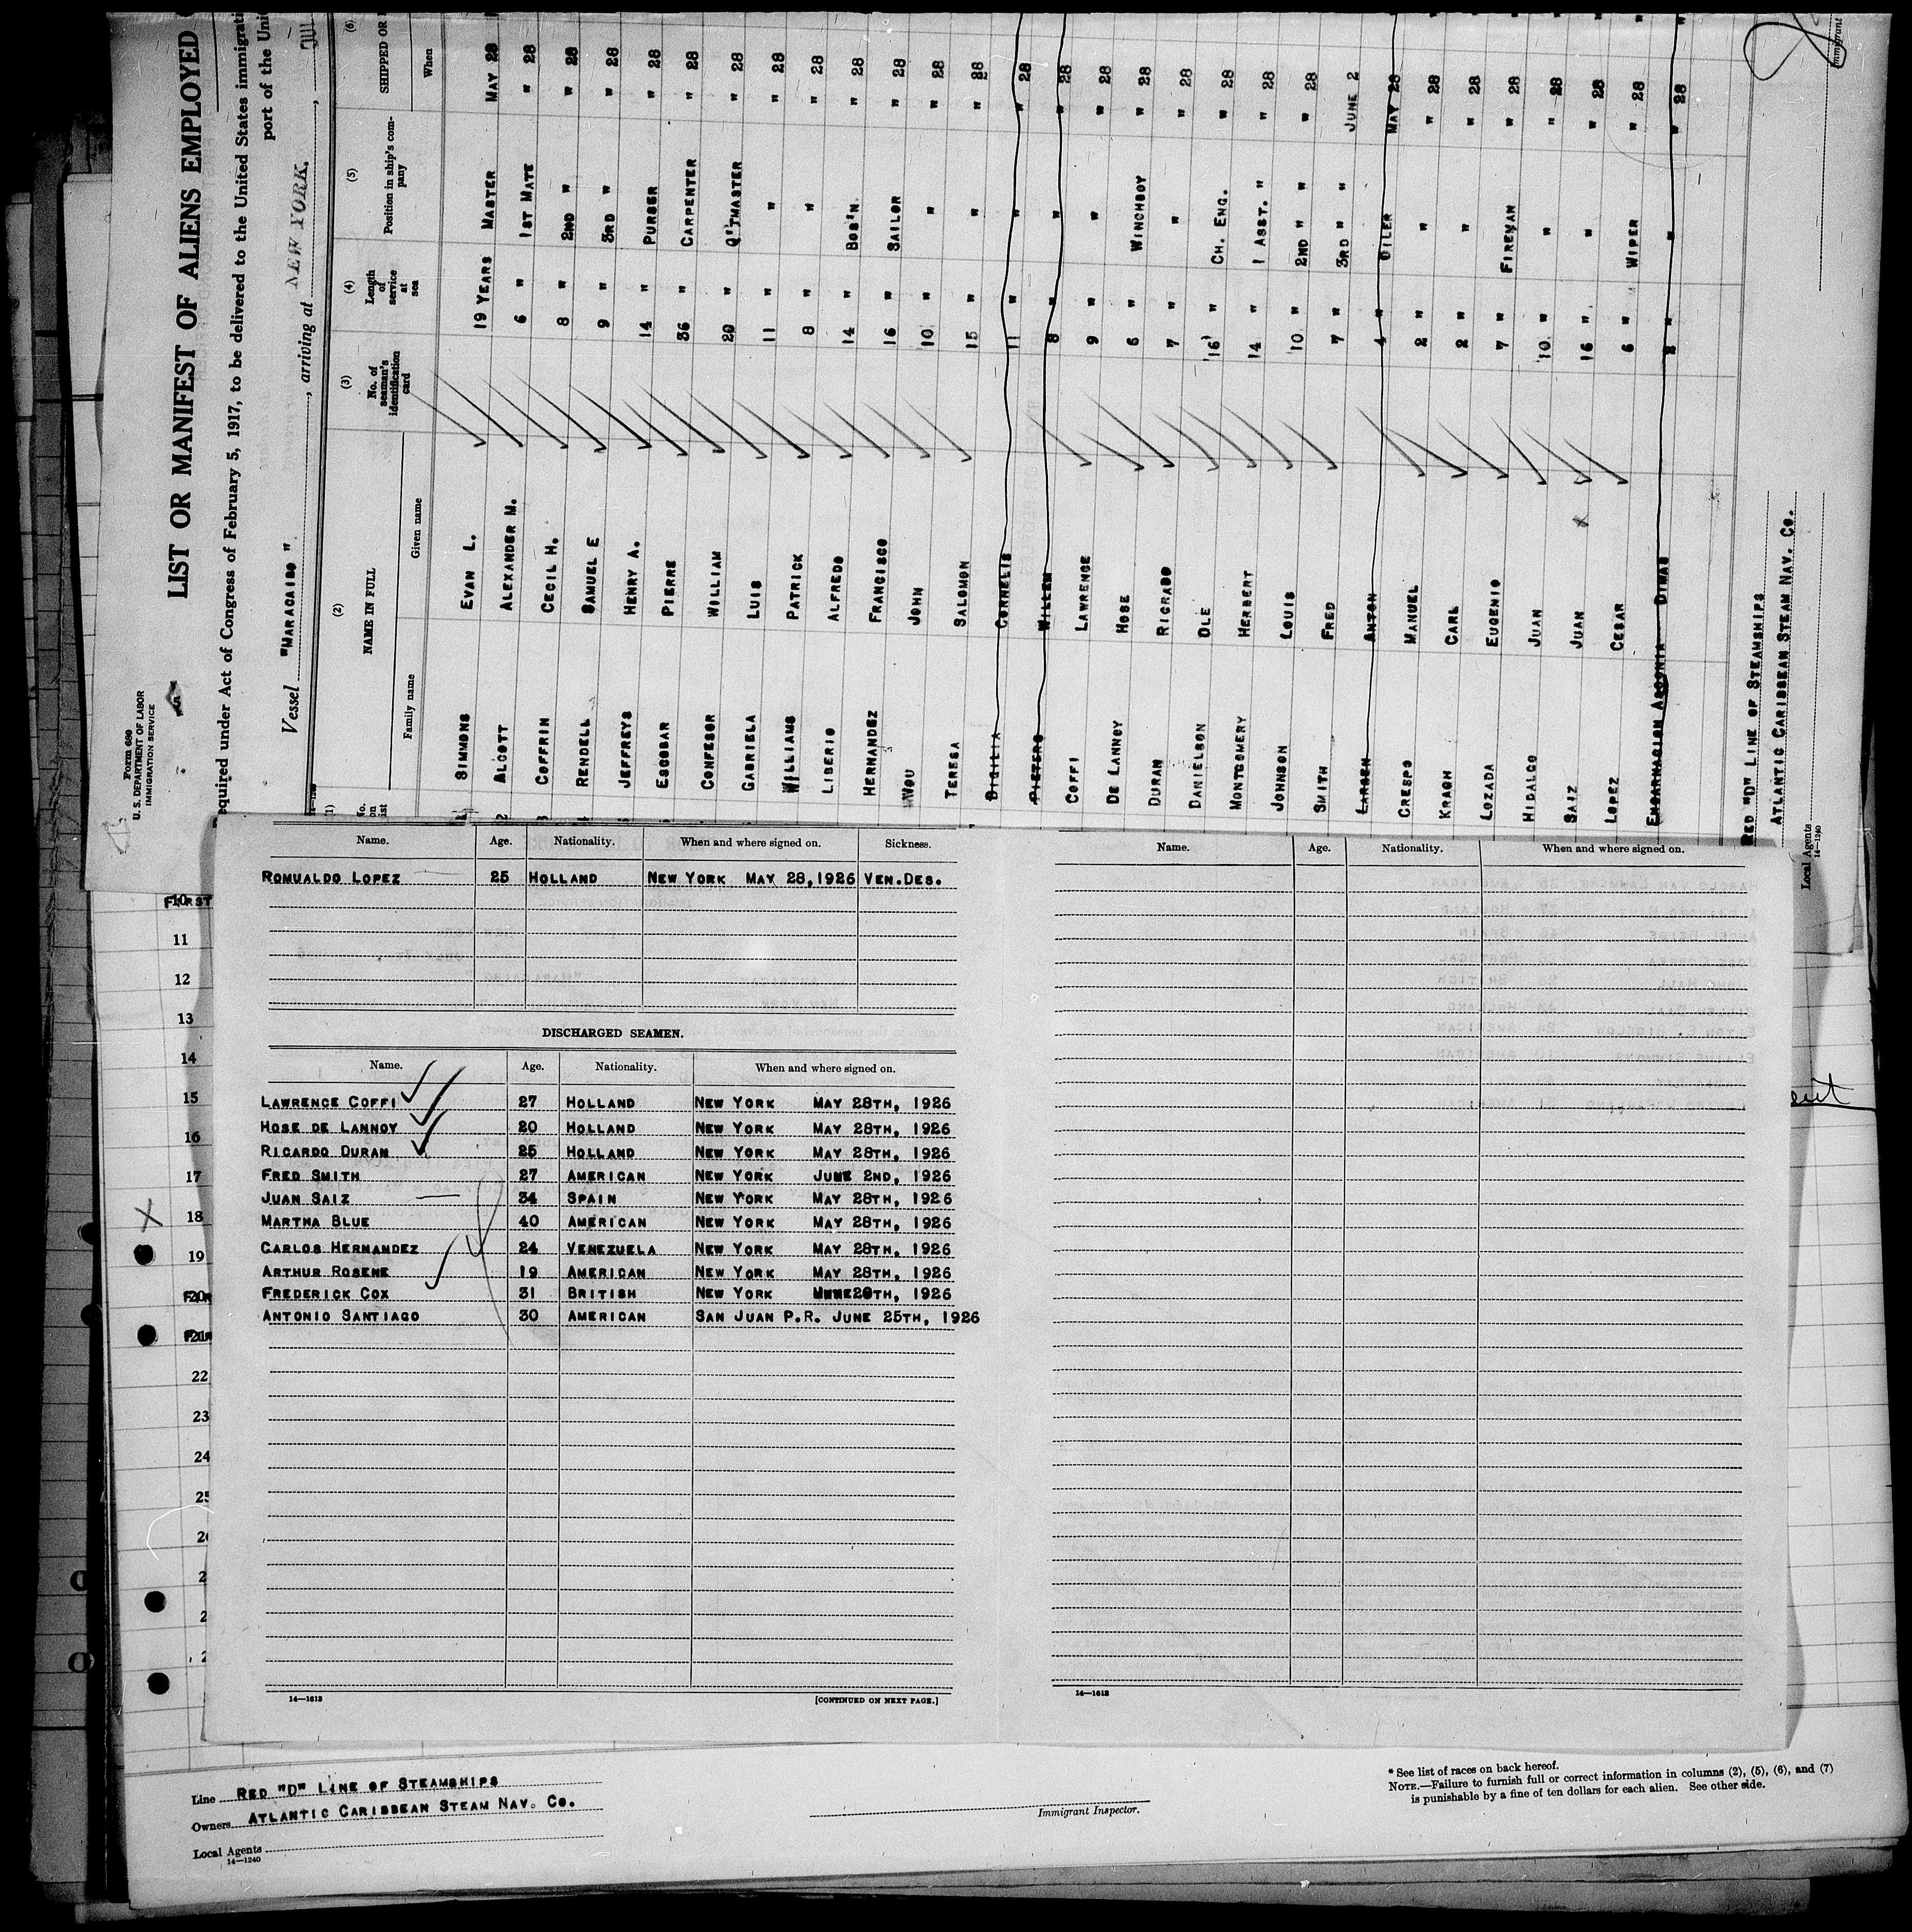 Form 680
U. S. DEPARTMENT OF LABOR
IMMIGRATION SERVICE
LIST OR MANIFEST OF ALIENS EMPLOYED
equired under Act of Congress of February 5, 1917, to be delivered to the United States immigrati
port of the Unit
Vessel "MARACAIBO", arriving at NEW YORK.,
(2) (3) (4) (5) (6)
NAME IN FULL No. of seaman's identification card Length of service at sea Position in ship's company SHIPPED OR
Family name Given name When
SIMMONS EVAN L. 19 YEARS MASTER MAY 28
ALCOTT ALEXANDER M. 6 " 1ST MATE " 28
COFFRIN CECIL H. 8 " 2ND " " 28
RENDELL SAMUEL E 9 " 3RD " " 28
JEFFREYS HENRY A. 14 " PURSER " 28
ESCOBAR PIERRE 36 " CARPENTER " 28
CONFESOR WILLIAM 20 " Q'TMASTER " 28
GABRIELA LUIS 11 " " " 28
WILLIAMS PATRICK 8 " " " 28
LIBERIO ALFREDO 14 " BOS'N " 28
HERNANDEZ FRANCISCO 16 " SAILOR " 28
WOU JOHN 10 " " " 28
TERESA SALOMON 15 " " " 28
BIGILIA CORNELIS 11 " " " 28
PIETERS WILLEM 8 " " " 28
COFFI LAWRENCE 9 " " " 28
DE LANNOY HOSE 6 " WINCHBOY " 28
DURAN RICRADO 7 " " " 28
DANIELSON OLE 16 " CH. ENG. " 28
MONTGOMERY HERBERT 14 " 1 ASST. " " 28
JOHNSON LOUIS 10 " 2ND " " " 28
SMITH FRED 7 " 3RD " " JUNE 2
LARSEN ANTON 4 " OILER MAY 28
CRESPO MANUEL 2 " " " 28
KRAGH CARL 2 " " " 28
LOZADA EUGENIO 7 " FIREMAN " 28
HIDALGO JUAN 10 " " " 28
SAIZ JUAN 16 " " " 28
LOPEZ CESAR 6 " WIPER " 28
ENCARNACION ASCONIA DIMAS " " " 28
RED "D" LINE OF STEAMSHIPS
ATLANTIC CARIBBEAN STEAM NAV. CO.
Local Agents
14—1240
Name. Age. Nationality. When and where signed on. Sickness.
ROMUALDO LOPEZ 25 HOLLAND NEW YORK MAY 28,1926 VEN.DES.
DISCHARGED SEAMEN.
Name. Age. Nationality. When and where signed on.
LAWRENCE COFFI 27 HOLLAND NEW YORK MAY 28TH, 1926
HOSE DE LANNOY 20 HOLLAND NEW YORK MAY 28TH, 1926
RICARDO DURAN 25 HOLLAND NEW YORK MAY 28TH, 1926
FRED SMITH 27 AMERICAN NEW YORK JUNE 2ND, 1926
JUAN SAIZ 34 SPAIN NEW YORK MAY 28TH, 1926
MARTHA BLUE 40 AMERICAN NEW YORK MAY 28TH, 1926
CARLOS HERNANDEZ 24 VENEZUELA NEW YORK MAY 28TH, 1926
ARTHUR ROSENE 19 AMERICAN NEW YORK MAY 28TH, 1926
FREDERICK COX 31 BRITISH NEW YORK 1926
ANTONIO SANTIAGO 30 AMERICAN SAN JUAN P.R. JUNE 25TH, 1926
14—1613 [CONTINUED ON NEXT PAGE.]
Name. Age. Nationality. When and where signed on.
14—1613
10
11
12
13
14
15
16
17
18
19
20
21
22
23
24
25
Line RED "D" LINE OF STEAMSHIPS
Owners ATLANTIC CARIBBEAN STEAM NAV. CO.
Local Agents
14—1240
Immigrant Inspector.
* See list of races on back hereof.
NOTE.—Failure to furnish full or correct information in columns (2), (5), (6), and (7)
is punishable by a fine of ten dollars for each alien. See other side.